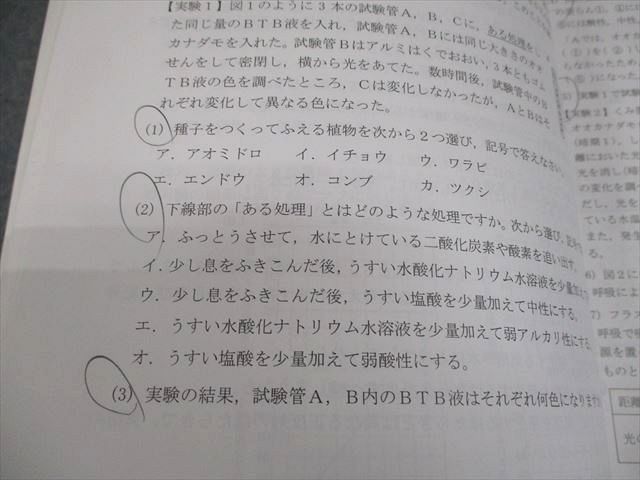 【実験1】図1のように3本の試験管A，B，Cに，ある処理を
た同じ量のBTB液を入れ，試験管A，Bには同じ大きさのオオ
カナダモを入れた。試験管Bはアルミはくでおおい，3本ともゴム
せんをして密閉し，横から光をあてた。数時間後，試験管中のB
TB液の色を調べたところ，Cは変化しなかったが，AとBはそ
れぞれ変化して異なる色になった。
(1) 種子をつくってふえる植物を次から2つ選び，記号で答えなさい。
ア．アオミドロ イ．イチョウ ウ．ワラビ
エ．エンドウ オ．コンブ カ．ツクシ
(2) 下線部の「ある処理」とはどのような処理ですか。次から選び，
ア．ふっとうさせて，水にとけている二酸化炭素や酸素を追い出す。
イ．少し息をふきこんだ後，うすい水酸化ナトリウム水溶液を少量加
ウ．少し息をふきこんだ後，うすい塩酸を少量加えて中性にする。
エ．うすい水酸化ナトリウム水溶液を少量加えて弱アルカリ性にする
オ．うすい塩酸を少量加えて弱酸性にする。
(3) 実験の結果，試験管A，B内のBTB液はそれぞれ何色になります
(1)を(2)
5) 実験1で試
【実験2】くみ
オオカナダモ
(暗期1)，し
離においた光
光を消し(暗
の変化を調
だし，光を
ている水
また，発
生
6) 図2に
呼吸によ
7) フラス
呼吸で吸
源を置
ものと
距離
光の